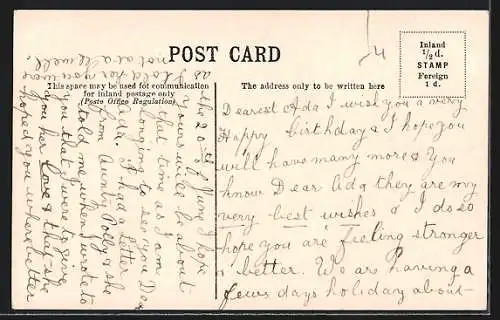 POST CARD
This space may be used for communication
for inland postage only
(Posto Office Regulation)
The address only to be written here
Inland
½ d.
STAMP
Foreign
1 d.
4
Dearest Ada I wish you a very
Happy birthday & I hope you
will have many more & you
know Dear Ada they are my
very best wishes & I do so
hope you are feeling stronger
n better. We are having a
fews days holiday about
the 20th of June I hope
yours will be about
that time as I am
longing to see you Dear
Ada. I had a Letter
from Aunty Polly & she
told me when I wrote to
you that I were to give
you her Love & that she
hoped you where better
as I told her you were
not at all well.